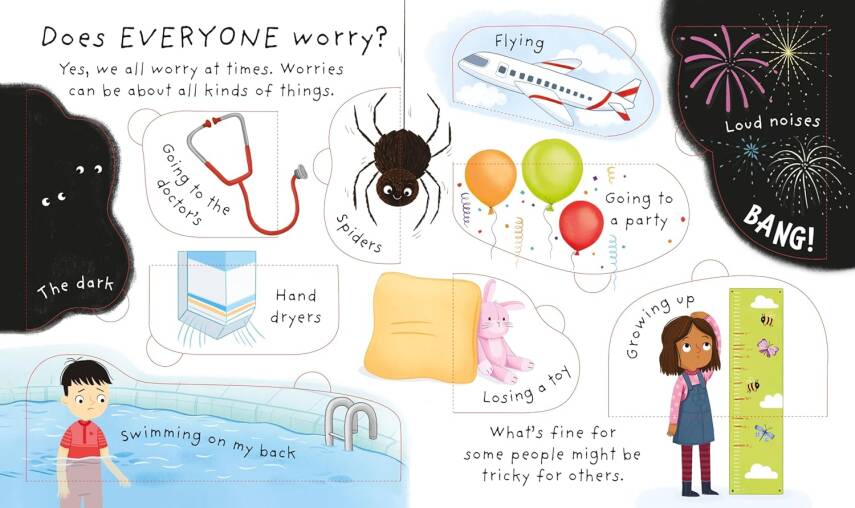 Does EVERYONE worry?
Yes, we all worry at times. Worries
can be about all kinds of things.
The dark
Going to the
doctor's
Spiders
Flying
Loud noises
BANG!
Going to
a party
Hand
dryers
Losing a toy
Growing up
Swimming on my back
What's fine for
some people might be
tricky for others.